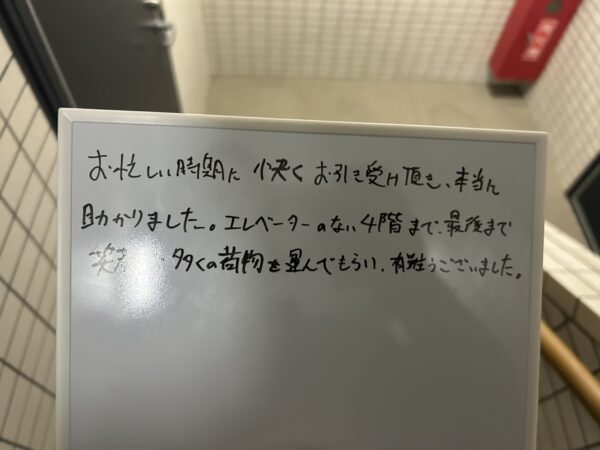 お忙しい時期に 快く お引き受け頂き、本当に
助かりました。エレベーターのない4階まで、最後まで
笑 多くの荷物を運んでもらい、有難うございました。